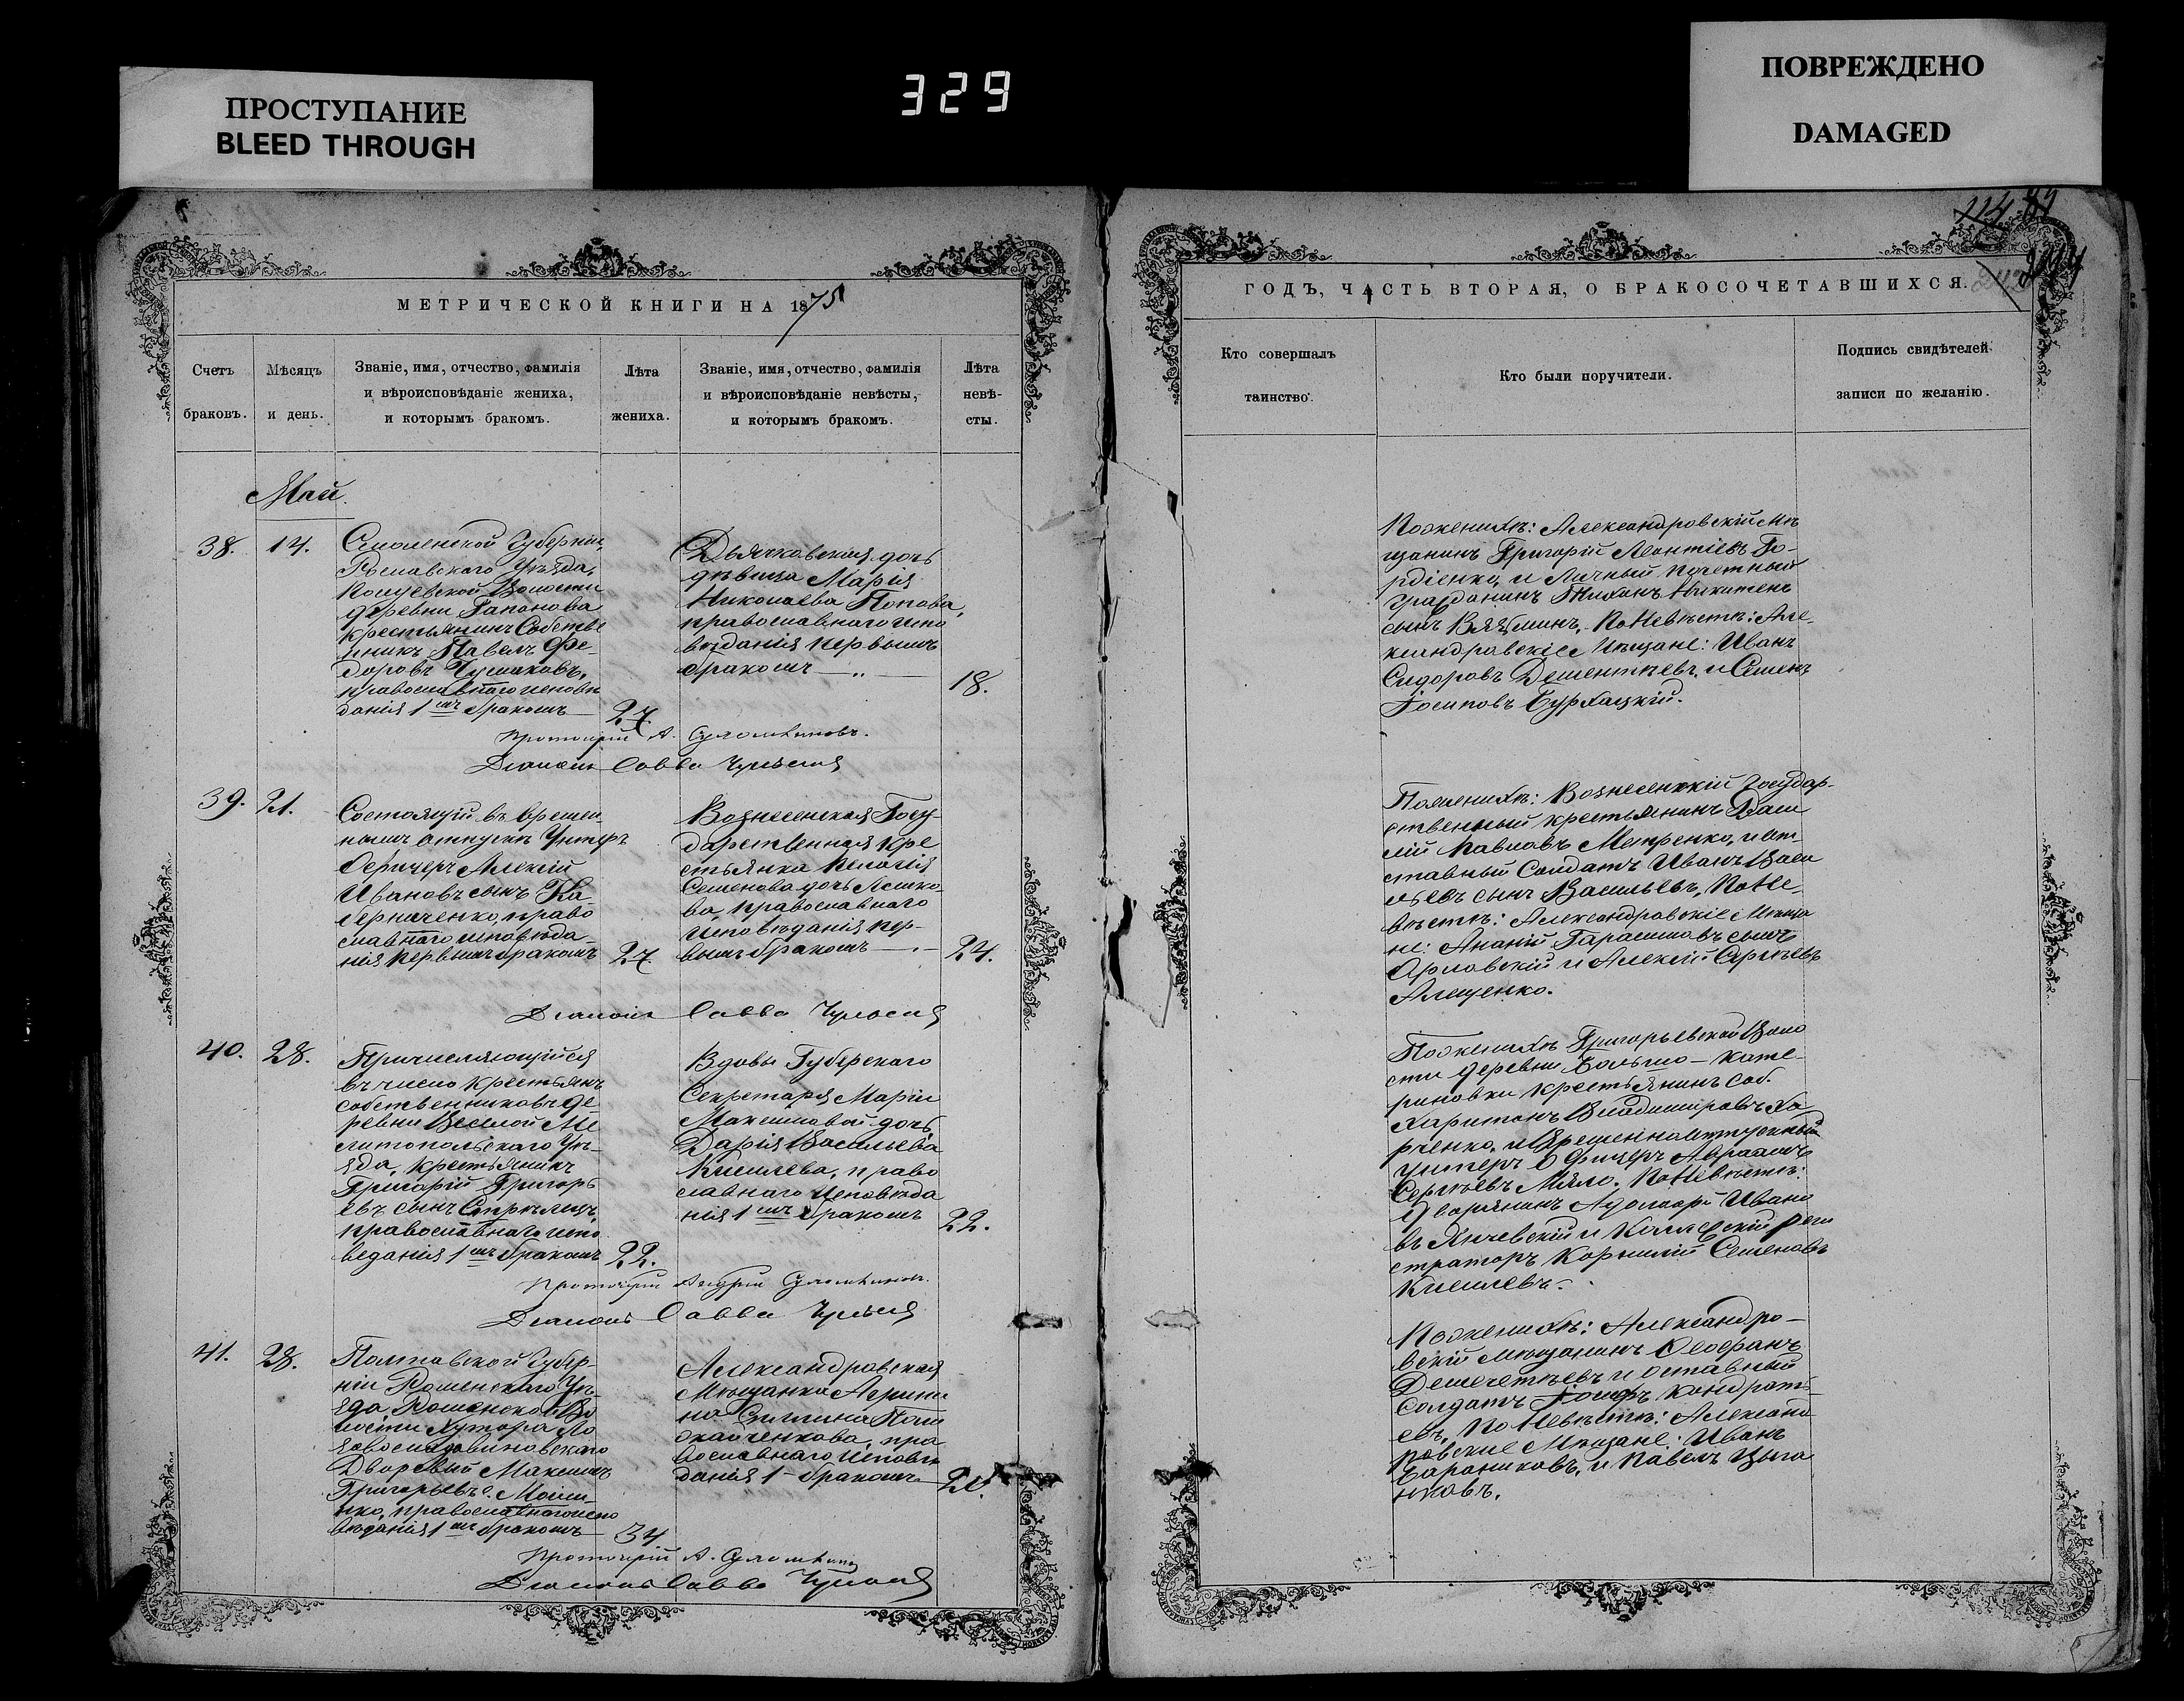 ПРОСТУПАНИЕ
BLEED THROUGH
329
ПОВРЕЖДЕНО
DAMAGED
МЕТРИЧЕСКОЙ КНИГИ НА 1875
Счетъ
браковъ.
Мѣсяцъ
и день.
Званіе, имя, отчество, фамилія
и вѣроисповѣданіе жениха,
и которымъ бракомъ.
Лѣта
жениха.
Званіе, имя, отчество, фамилія
и вѣроисповѣданіе невѣсты,
и которымъ бракомъ.
Лѣта
невѣ-
сты.
Май.
38.
14.
Смоленской Губерніи,
Рославского Уѣзда,
Волости
деревни Гапанова
крестьянинъ Собстве
нникъ Павелъ Ѳе-
доровъ Чумаковъ,
православнаго исповѣ
данія 1мъ бракомъ
27.
Дьячковская дочь
дѣвица Марія
Николаева Попова,
православнаго испо
вѣданія первымъ
бракомъ
18.
Протоіерей А.
Діаконъ Савва
39.
21.
Состоящій въ времен-
номъ отпускѣ Унтеръ
Офицеръ Алексій
Ивановъ сынъ Ка-
право
славнаго исповѣда-
нія первымъ бракомъ
27
Вознесенская Госу-
дарственная кре
стьянка Пелагія
Семенова дочь
ва, православнаго
исповѣданія пер-
вымъ бракомъ
24.
Діаконъ Савва
40.
28.
Причисляющійся
въ число крестьянъ
собственниковъ де-
ревни Веселой Ме
литопольскаго Уѣ-
зда, крестьянинъ
Григорій Григорь
евъ сынъ Стрѣлецъ,
православнаго испо
веданія 1мъ бракомъ
22.
Вдовы Губерскаго
Секретаря Маріи
Максимовой дочь
Дарія Васильева
Киселева, право
славнаго исповѣда
нія 1мъ бракомъ
22.
Протоіерей Андрей
Діаконъ Савва
41.
28.
Полтавской Губер-
ніи Роменскаго Уѣ-
зда Роменской Во
лости Хутора Ло
Дворовый Максимъ
Григорьевъ
православнаго испо
вѣданія 1мъ бракомъ
34
Александровская
Мѣщанка Агрипи
на
пра
вославнаго исповѣ
данія 1 бракомъ
20.
Протоіерей А.
Діаконъ Савва
ГОДЪ, ЧАСТЬ ВТОРАЯ, О БРАКОСОЧЕТАВШИХСЯ.
Кто совершалъ
таинство.
Кто были поручители.
Подпись свидѣтелей
записи по желанію.
По женихѣ: Александровскій Мѣ
щанинъ Григорій Леонтіевъ Го-
рдіенко, и Личный почетный
гражданинъ Тихонъ Никитенъ
сынъ Вязминъ. По Невѣстѣ: Але-
ксандровскіе Мѣщане: Иванъ
Сидоровъ Дементьевъ, и Семенъ
Іосиповъ Бурхацкій.
По женихѣ: Вознесенскій Государ-
ственный крестьянинъ Васи
лій Павловъ и от-
ставный Солдатъ Иванъ Васи
льевъ сынъ Васильевъ, По Не-
вѣстѣ: Александровскіе Мѣща
не: Ананій Гарасимовъ сынъ
Орловскій и Алексій Сергѣевъ
Алещенко.
По женихѣ Григорьевской Воло
сти деревни Больше-Кате-
риновки крестьянинъ Соб.
Харитонъ Владиміровъ Ха
рченко, и Временноотпускный
Унтеръ Офицеръ Авраамъ
Сергѣевъ Мяло. По Невѣстѣ:
Дворянинъ Адольфъ Ивано
въ Янчевскій и Коллежскій реги
страторъ Корнилій Семеновъ
Киселевъ.
По женихѣ: Александро-
вскій мѣщанинъ Ѳеофанъ
Демечтьевъ и отставный
Солдатъ Іосифъ Кондрать-
евъ, По Невѣстѣ: Алексан
ровские Мѣщане: Иванъ
Бараниковъ, и Павелъ Цыга
нковъ.